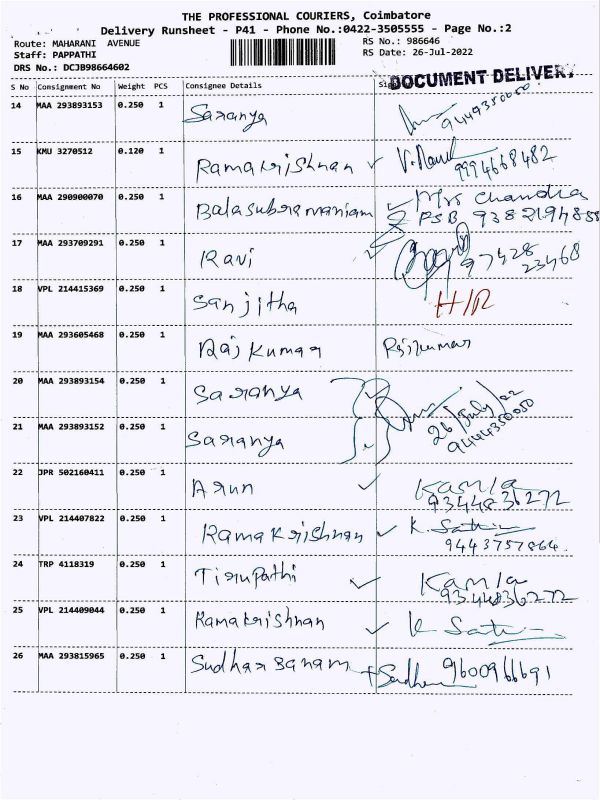 THE PROFESSIONAL COURIERS, Coimbatore
Delivery Runsheet - P41 - Phone No.:0422-3505555 - Page No.:2
Route: MAHARANI AVENUE RS No.: 986646
Staff: PAPPATHI RS Date: 26-Jul-2022
DRS No.: DCJB98664602
DOCUMENT DELIVERY
S No Consignment No Weight PCS Consignee Details
14 MAA 293893153 0.250 1 Saranya 9449350050
15 KMU 3270512 0.120 1 Ramakrishnan 9994668482
16 MAA 290900070 0.250 1 Balasubramaniam Mrs Chandra
PSB 9382194858
17 MAA 293709291 0.250 1 Ravi 97428
23468
18 VPL 214415369 0.250 1 Sanjitha H/R
19 MAA 293605468 0.250 1 Rajkumar Rajkumar
20 MAA 293893154 0.250 1 Saranya 26/July/22
9444350050
21 MAA 293893152 0.250 1 Saranya
22 JPR 502160411 0.250 1 Arun Kamla
9344836272
23 VPL 214407822 0.250 1 Ramakrishnan K.
9443757864.
24 TRP 4118319 0.250 1 Tirupathi Kamla
9344836272
25 VPL 214409044 0.250 1 Ramakrishnan K
26 MAA 293815965 0.250 1 Sudharsanam 9600966691